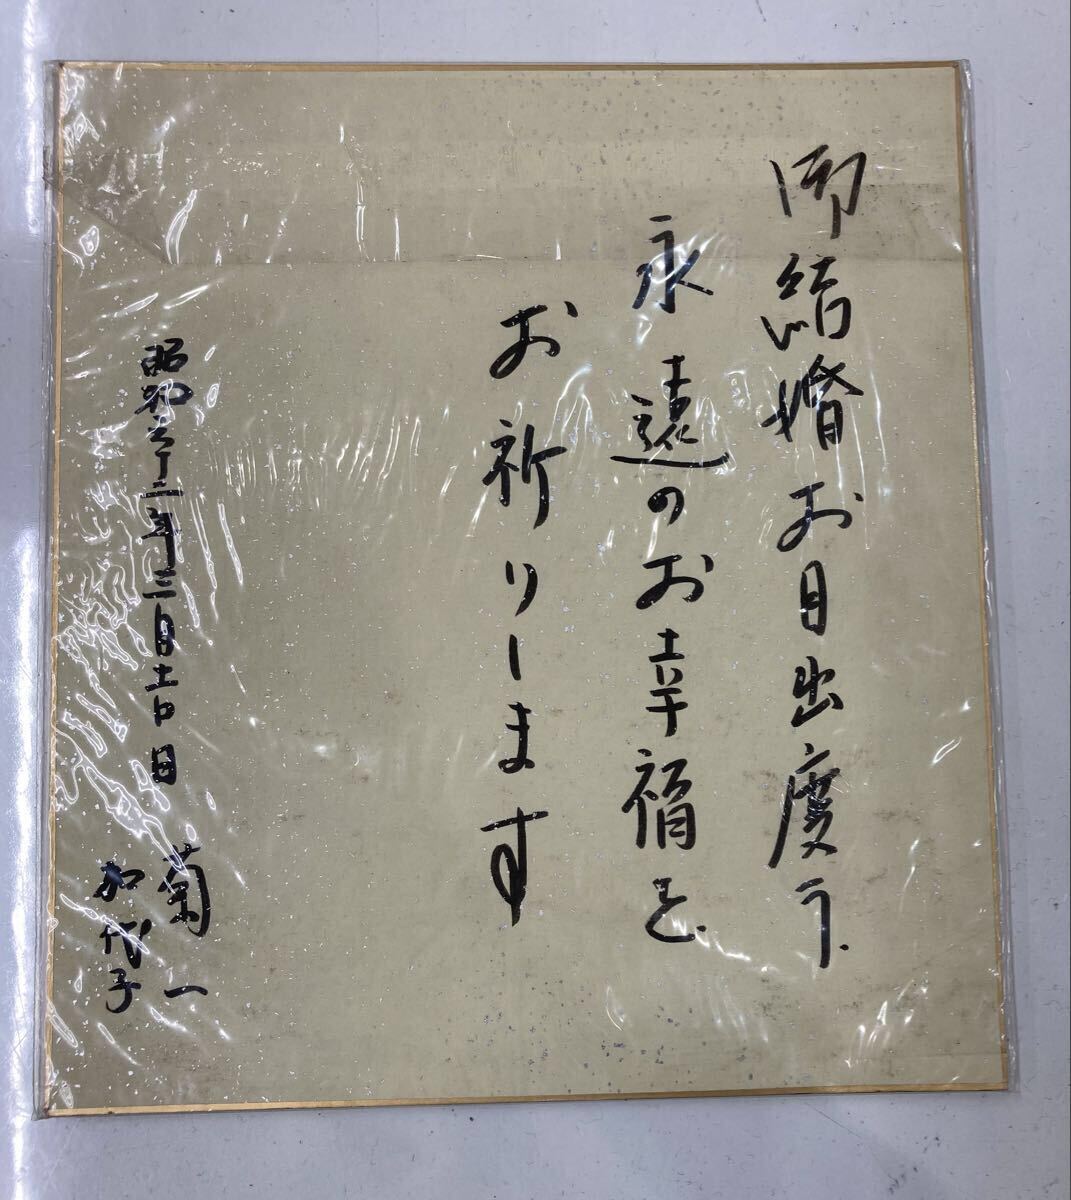 御結婚お目出度う
永遠のお幸福を
お祈りします
昭和 二年三月十 日
菊一
加代子